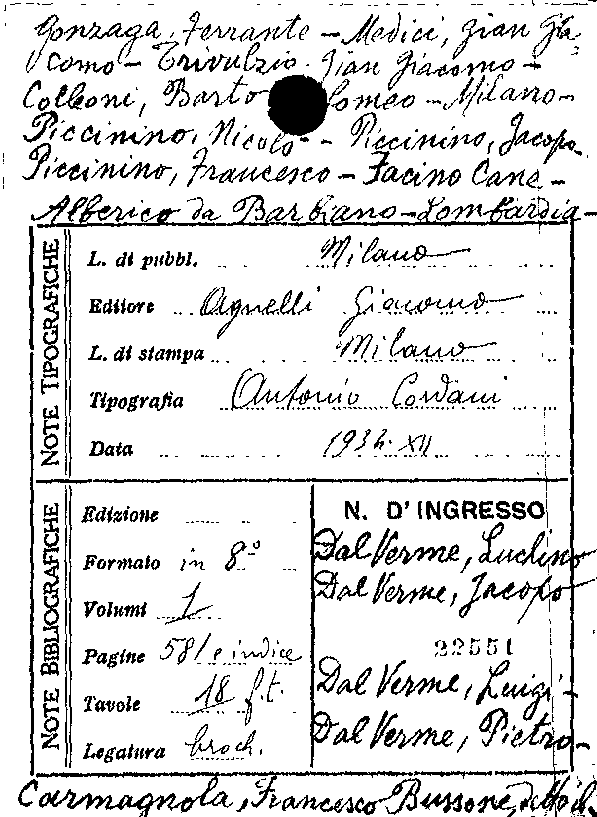 Gonzaga, Ferrante - Medici, Gian Gia-
como - Trivulzio Gian Giacomo -
Colleoni, Bartolomeo - Milano -
Piccinino, Nicolò - Piccinino, Jacopo
Piccinino, Francesco - Facino Cane -
Alberico da Barbiano - Lombardia -
NOTE TIPOGRAFICHE
L. di pubbl. Milano
Editore Agnelli Giacomo
L. di stampa Milano
Tipografia Antonio Cordani
Data 1934. XII
NOTE BIBLIOGRAFICHE
Edizione
Formato in 8º
Volumi 1
Pagine 581 e indice
Tavole 18 f.t.
Legatura broch.
N. D'INGRESSO
Dal Verme, Luchino
Dal Verme, Jacopo
22551
Dal Verme, Luigi -
Dal Verme, Pietro -
Carmagnola, Francesco Bussone, detto il